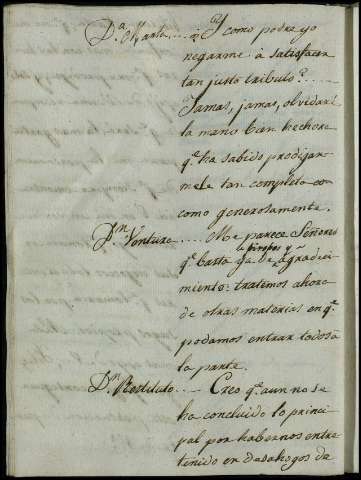 D.ª Marta.... ¿Y como podre yo
negarme à satisfacer
tan justo tributo?....
Jamas, jamas, olvidaré
la mano bien hechora
q.e ha sabido prodigar
mela tan completa co
como generosamente.
D.n Ventura.... Me parece Señores
piropos y
q.e basta ya de agradeci
miento: tratemos ahora
de otras materias en q.e
podamos entrar todos à
la parte.
D.n Restituto.... Creo q.e aun no se
ha concluido lo princi
pal por habernos entre
tenido en desahogos de